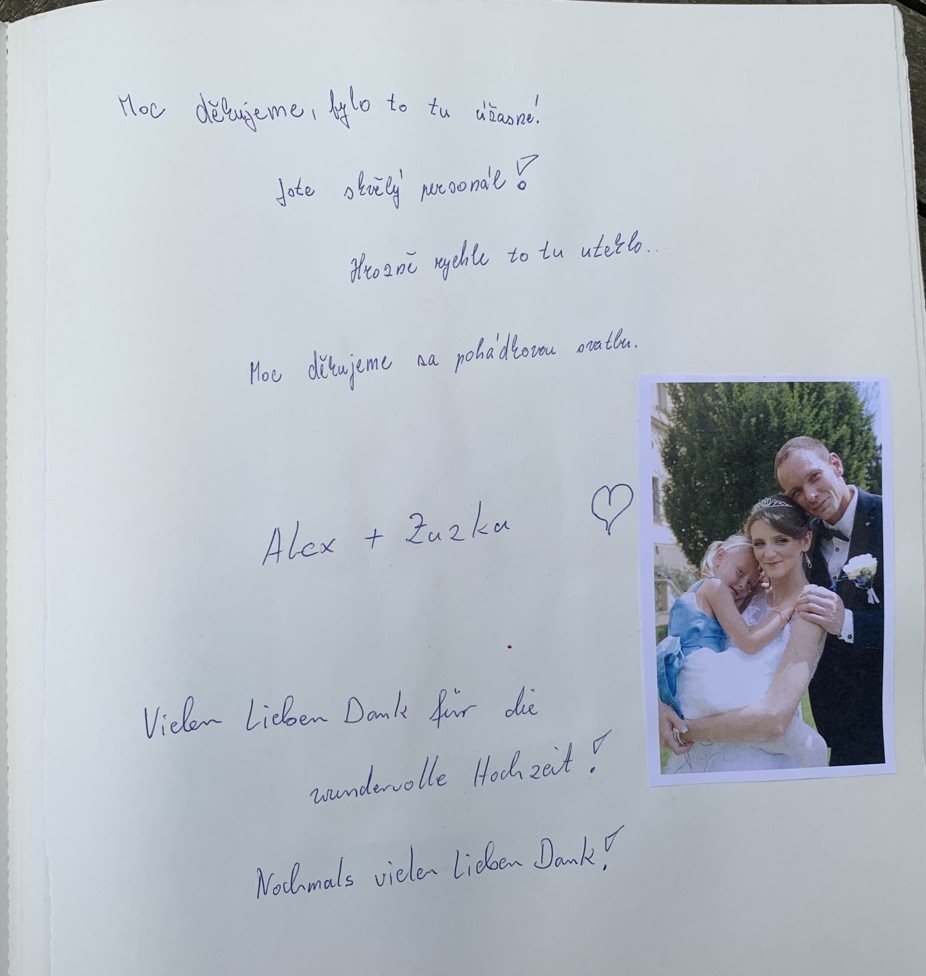 Moc děkujeme, bylo to tu úžasné!
Jste skvělý personál!
Hrozně rychle to tu uteklo..
Moc děkujeme za pohádkovou svatbu.
Alex + Zuzka
Vielen Lieben Dank für die
wundervolle Hochzeit!
Nochmals vielen Lieben Dank!